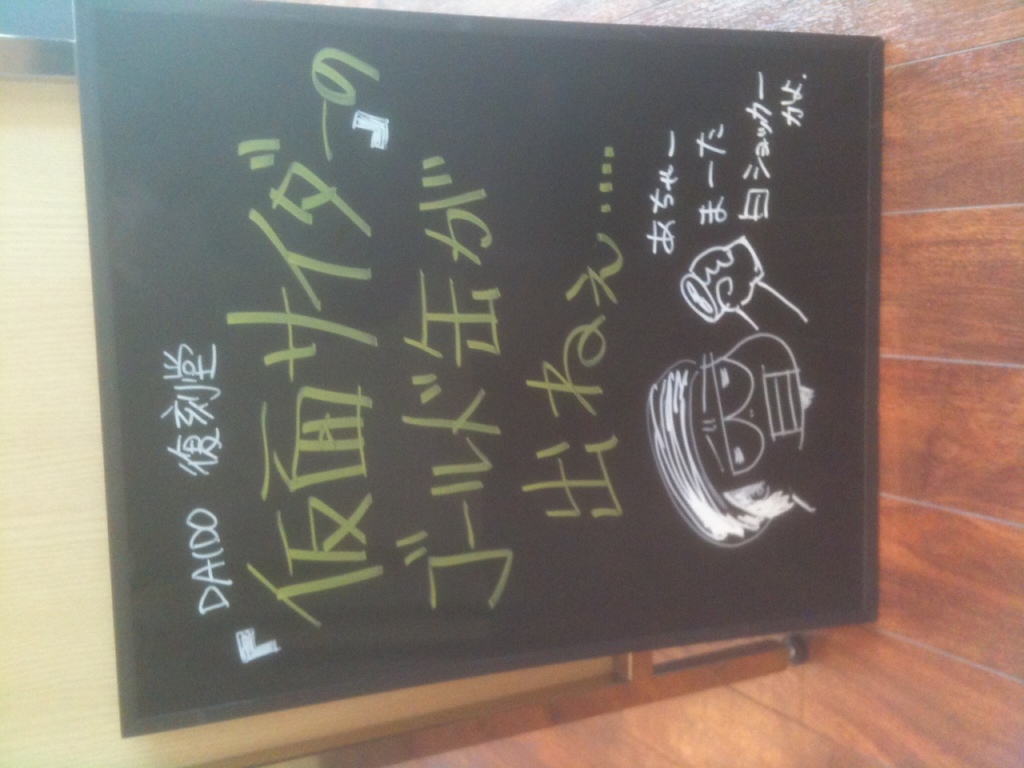 DAIDO 復刻堂
『仮面サイダー』の
ゴールド缶が
出ねぇ....
あちゃー
まーた
白ショッカー
かよ.